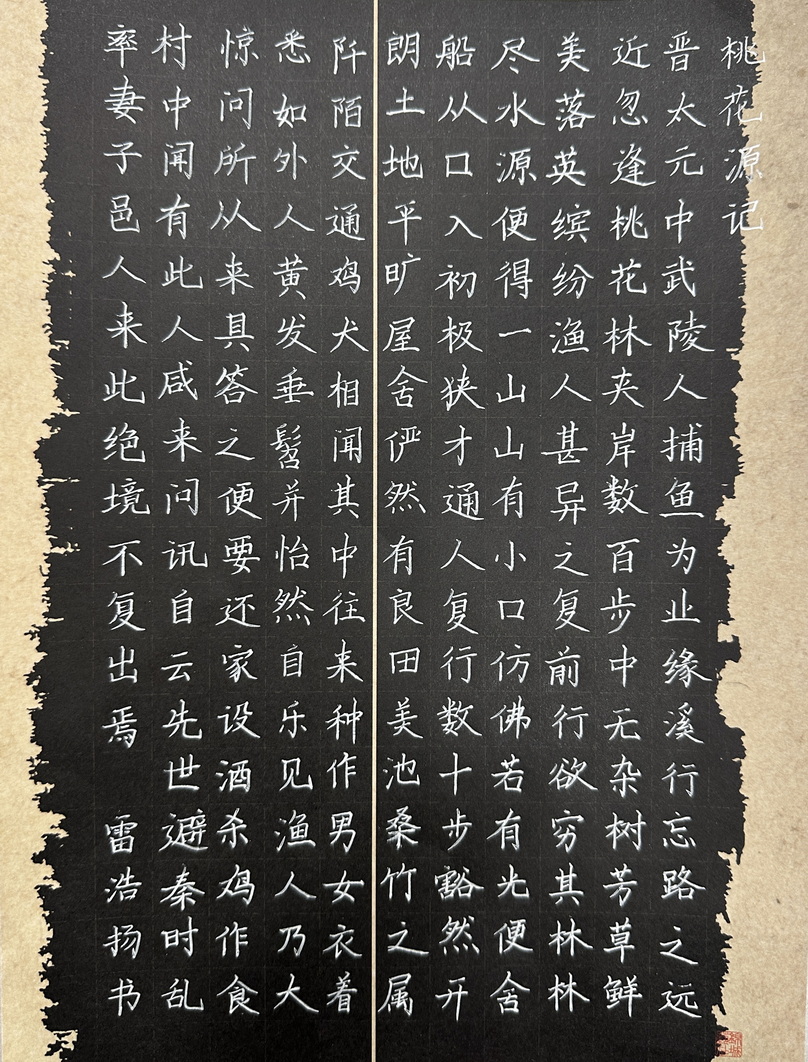 桃花源记
晋太元中武陵人捕鱼为业缘溪行忘路之远
近忽逢桃花林夹岸数百步中无杂树芳草鲜
美落英缤纷渔人甚异之复前行欲穷其林林
尽水源便得一山山有小口仿佛若有光便舍
船从口入初极狭才通人复行数十步豁然开
朗土地平旷屋舍俨然有良田美池桑竹之属
阡陌交通鸡犬相闻其中往来种作男女衣着
悉如外人黄发垂髫并怡然自乐见渔人乃大
惊问所从来具答之便要还家设酒杀鸡作食
村中闻有此人咸来问讯自云先世避秦时乱
率妻子邑人来此绝境不复出焉 雷浩扬书